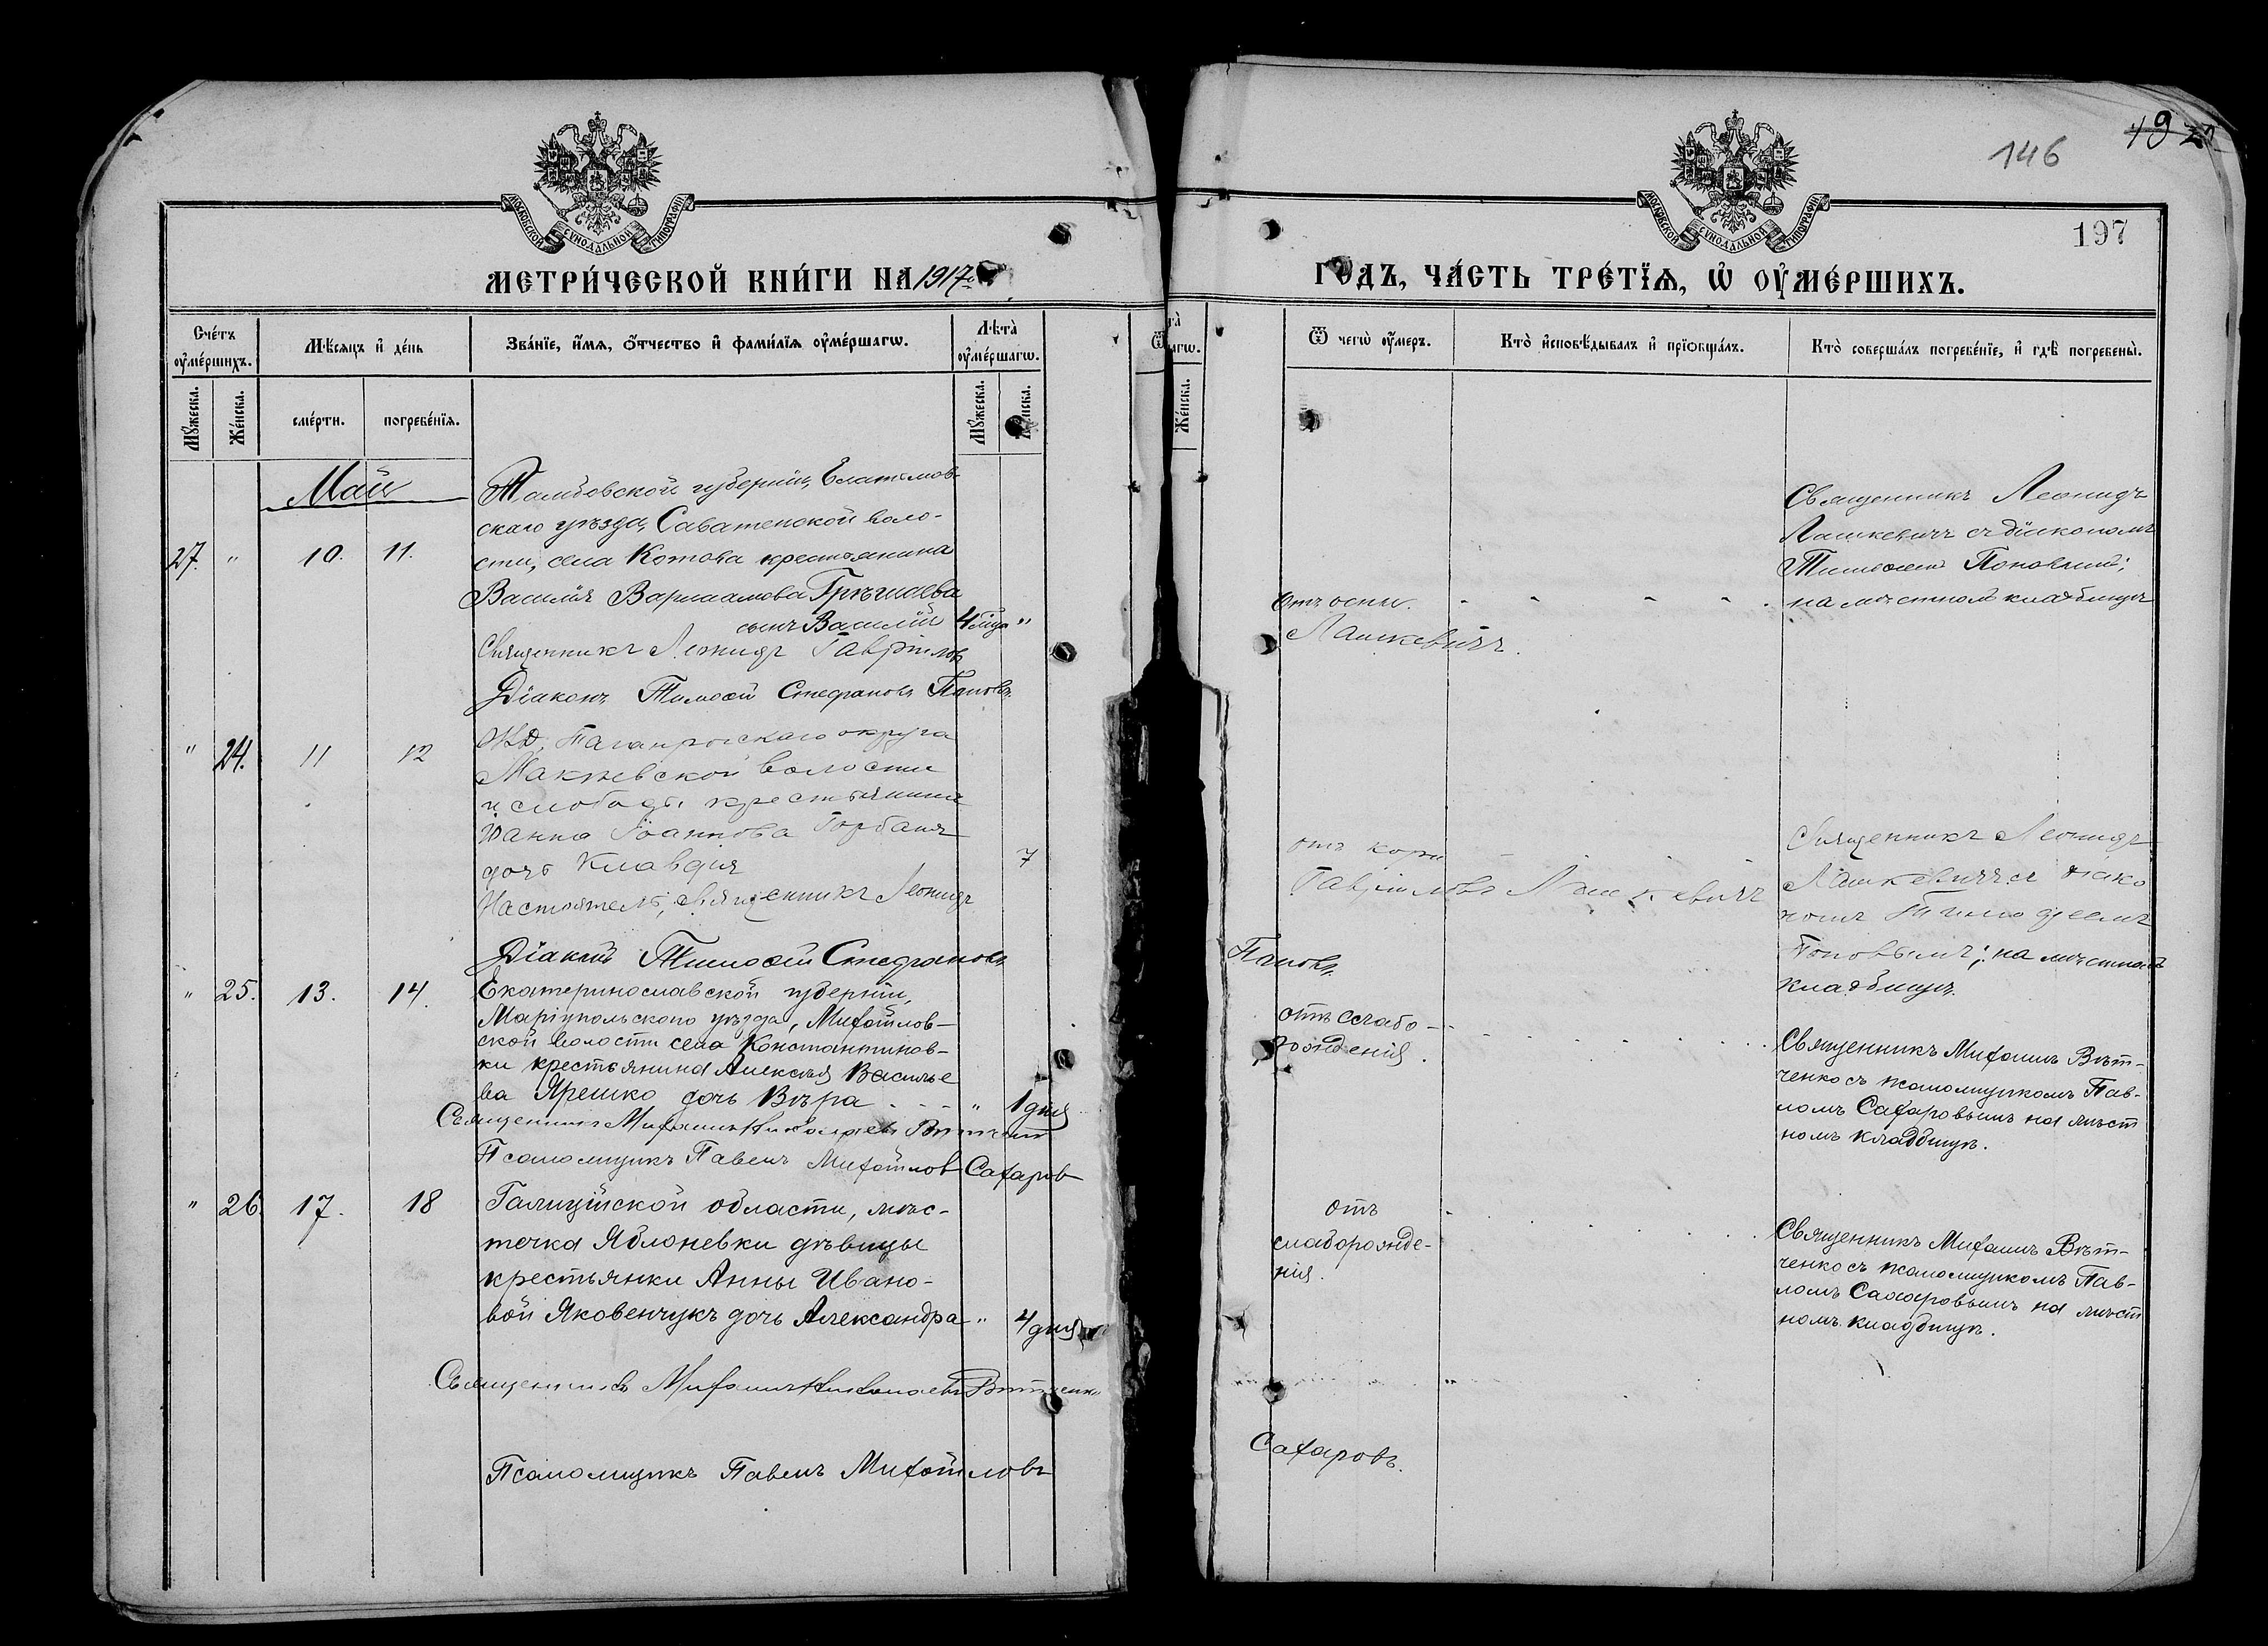 146
197
МОСКОВСКОЙ СѴНОДАЛЬНОЙ ТИПОГРАФІИ
МОСКОВСКОЙ СѴНОДАЛЬНОЙ ТИПОГРАФІИ
МЕТРИ́ЧЕСКОЙ КНИ́ГИ НА 1917
ГОДЪ, ЧА́СТЬ ТРЕ́ТЇѦ, Ѽ ОУ҆МЕ́РШИХЪ.
Сче́тъ оу҆ме́ршихъ.
Мѣ́сяцъ и҆ де́нь
Зва́нїе, и҆́мѧ, ѻ҆́тчество и҆ фами́лїѧ оу҆ме́ршагѡ.
Лѣта̀ оу҆ме́ршагѡ.
Ѿ чегѡ̀ оу҆́меръ.
Кто̀ и҆сповѣ́дывалъ и҆ прїѡбща́лъ.
Кто̀ соверша́лъ погребе́нїе, и҆ гдѣ̀ погребены̀.
Мꙋ́жеска.
Же́нска.
сме́рти.
погребе́нїѧ.
Мꙋ́жеска.
Же́нска.
Же́нска.
Май
27. " 10. 11.
Тамбовской губерніи, Елатомов-
скаго уѣзда, Саватенской воло-
сти, села Котова крестьянина
Василія Варлаамова
сынъ Василій 4 года "
Отъ оспы.
Священникъ Леонидъ
Лашкевичъ съ діакономъ
Тимоѳеемъ Поповымъ;
на мѣстномъ кладбищѣ
Священникъ Леонидъ Гавріиловъ Лашкевичъ.
Діаконъ Тимоѳей Стефановъ Поповъ.
" 24. 11 12
ОВД, Таганрогскаго округа
Макѣевской волости
и слободы крестьянина
Іоанна Іоаннова Горбаня
дочь Клавдія 7
отъ кори
Священникъ Леонидъ
Лашкевичъ съ діако
номъ Тимоѳеемъ
Поповымъ; на мѣстномъ
кладбищѣ.
Настоятель, священникъ Леонидъ Гавріиловъ Лашкевичъ
Діаконъ Тимоѳей Стефановъ Поповъ.
" 25. 13. 14.
Екатеринославской губерніи,
Маріупольскаго уѣзда, Михайлов-
ской волости села Константинов-
ки крестьянина Алексѣя Василье
ва Ярешко дочь Вѣра " 1 дня
отъ слабо-
рожденія.
Священникъ Михаилъ Вѣт-
ченко съ псаломщикомъ Пав-
ломъ Сахаровымъ на мѣст
номъ кладбищѣ.
Священникъ Михаилъ Николаевъ Вѣтченко
Псаломщикъ Павелъ Михайловъ Сахаровъ
" 26. 17. 18
Галиційской области, мѣс-
течка Яблоневки дѣвицы
крестьянки Анны Ивано-
вой Яковенчукъ дочь Александра " 4 дня
отъ
слаборожде-
нія.
Священникъ Михаилъ Вѣт-
ченко съ псаломщикомъ Пав-
ломъ Сахаровымъ на мѣст
номъ кладбищѣ.
Священникъ Михаилъ Николаевъ Вѣтченко
Псаломщикъ Павелъ Михайловъ Сахаровъ.